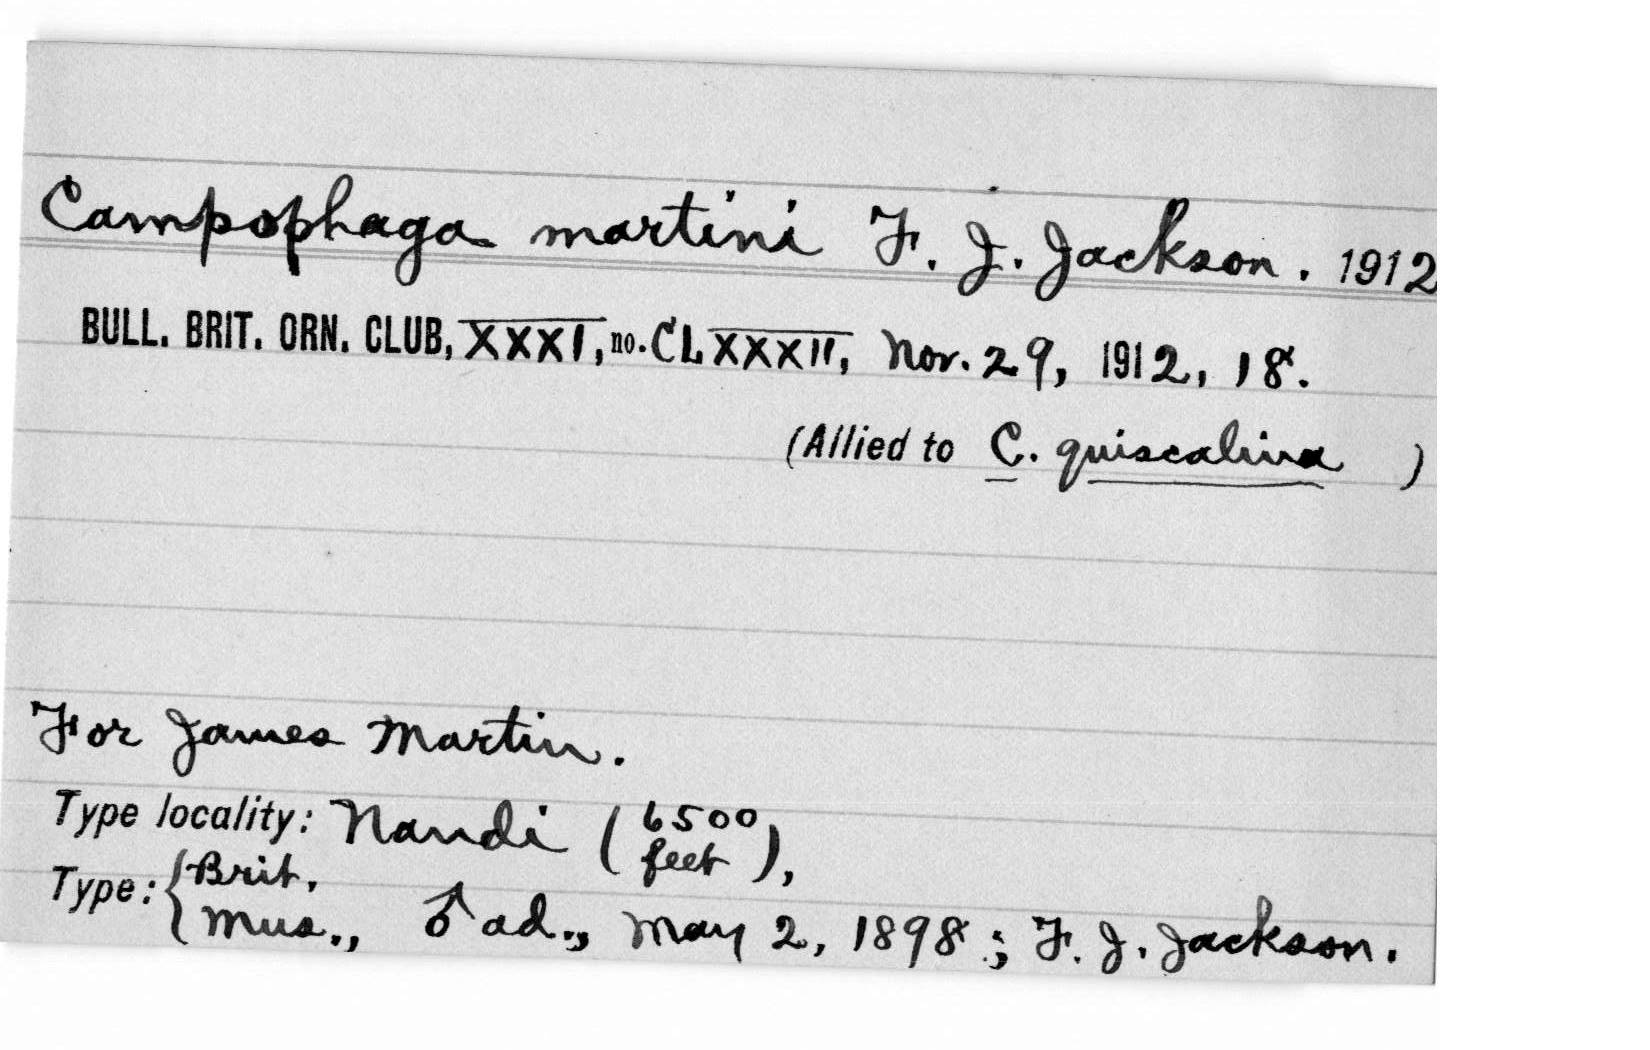 Campophaga martini F. J. Jackson. 1912
BULL. BRIT. ORN. CLUB, XXXI, no. CLXXXII, Nov. 29, 1912, 18.
(Allied to C. quiscalina )
For James Martin.
Type locality: Nandi (6500 feet),
Type: {Brit. Mus., ♂ ad., May 2, 1898; F. J. Jackson.